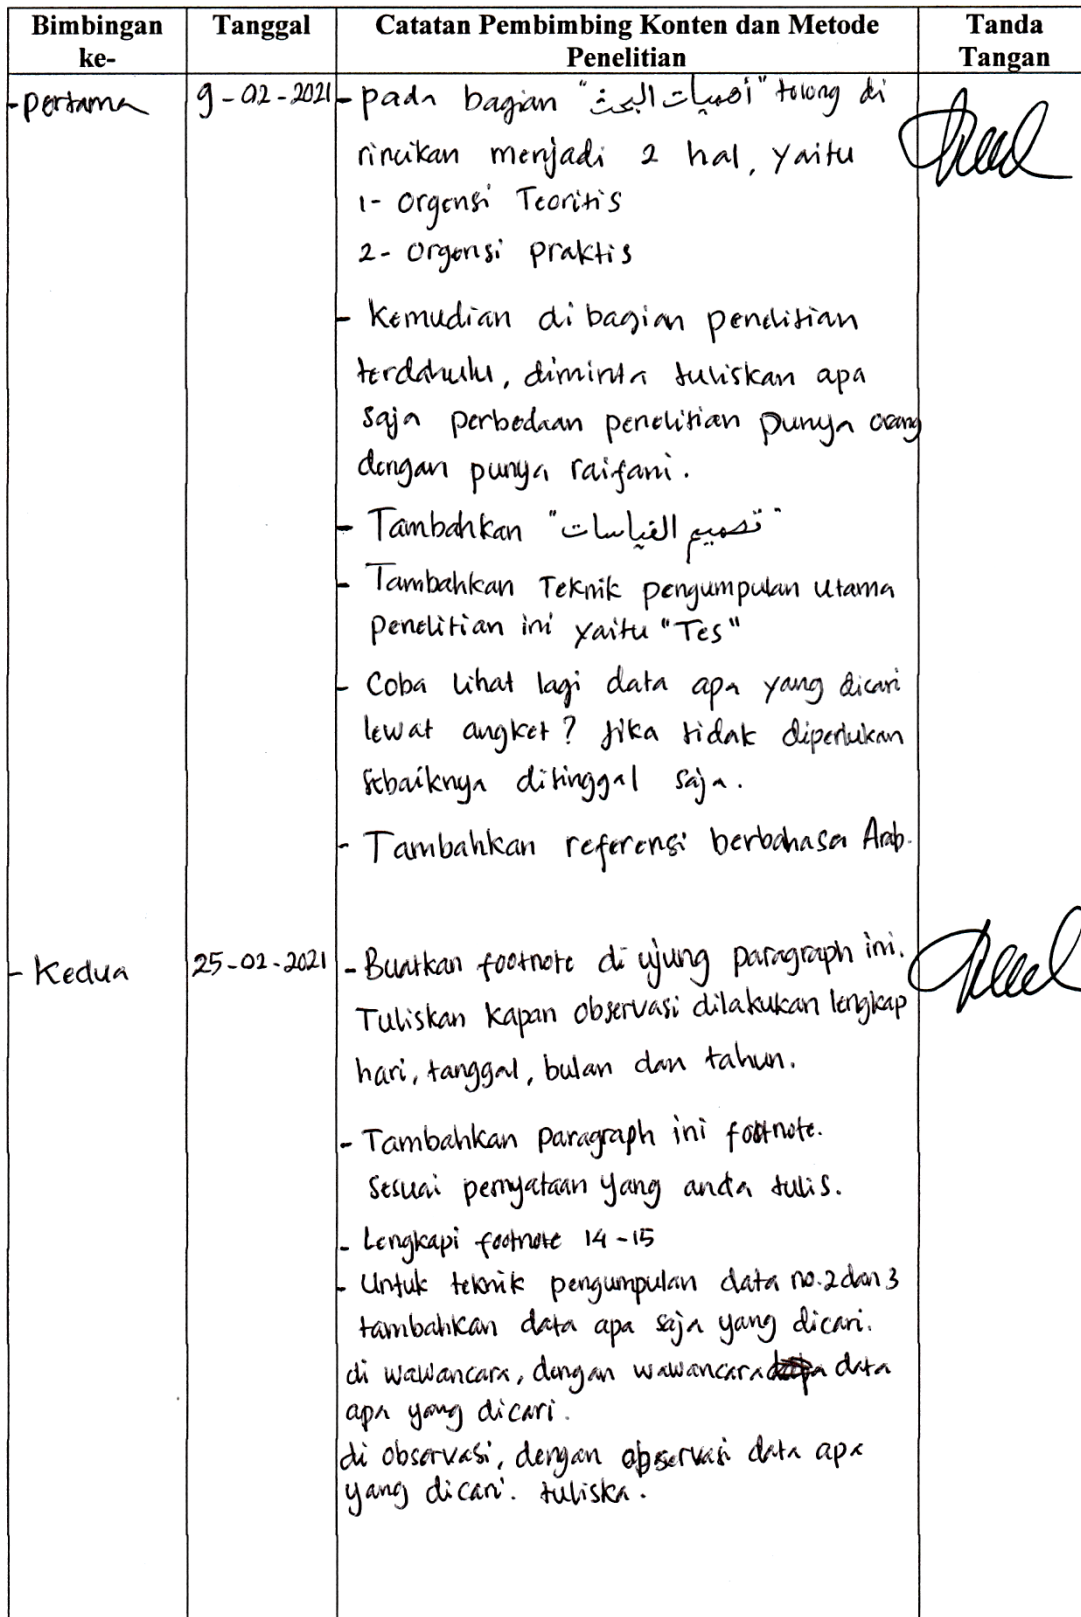 Bimbingan ke- Tanggal Catatan Pembimbing Konten dan Metode Penelitian Tanda Tangan
- pertama 9-02-2021 - pada bagian "أهميات البحث" tolong di
rincikan menjadi 2 hal, yaitu
1- Orgensi Teoritis
2- Orgensi praktis
- Kemudian di bagian penelitian
terdahulu, diminta tuliskan apa
saja perbedaan penelitian punya orang
dengan punya raifani.
- Tambahkan "تصميم القياسات"
- Tambahkan Teknik pengumpulan Utama
penelitian ini yaitu "Tes"
- Coba lihat lagi data apa yang dicari
lewat angket? Jika tidak diperlukan
sebaiknya ditinggal saja.
- Tambahkan referensi berbahasa Arab.
- Kedua 25-02-2021 - Buatkan footnote di ujung paragraph ini.
Tuliskan kapan observasi dilakukan lengkap
hari, tanggal, bulan dan tahun.
- Tambahkan paragraph ini footnote.
Sesuai pernyataan yang anda tulis.
- Lengkapi footnote 14-15
- Untuk teknik pengumpulan data no.2 dan 3
tambahkan data apa saja yang dicari.
di wawancara, dengan wawancara data
apa yang dicari.
di observasi, dengan observasi data apa
yang dicari. tuliska.